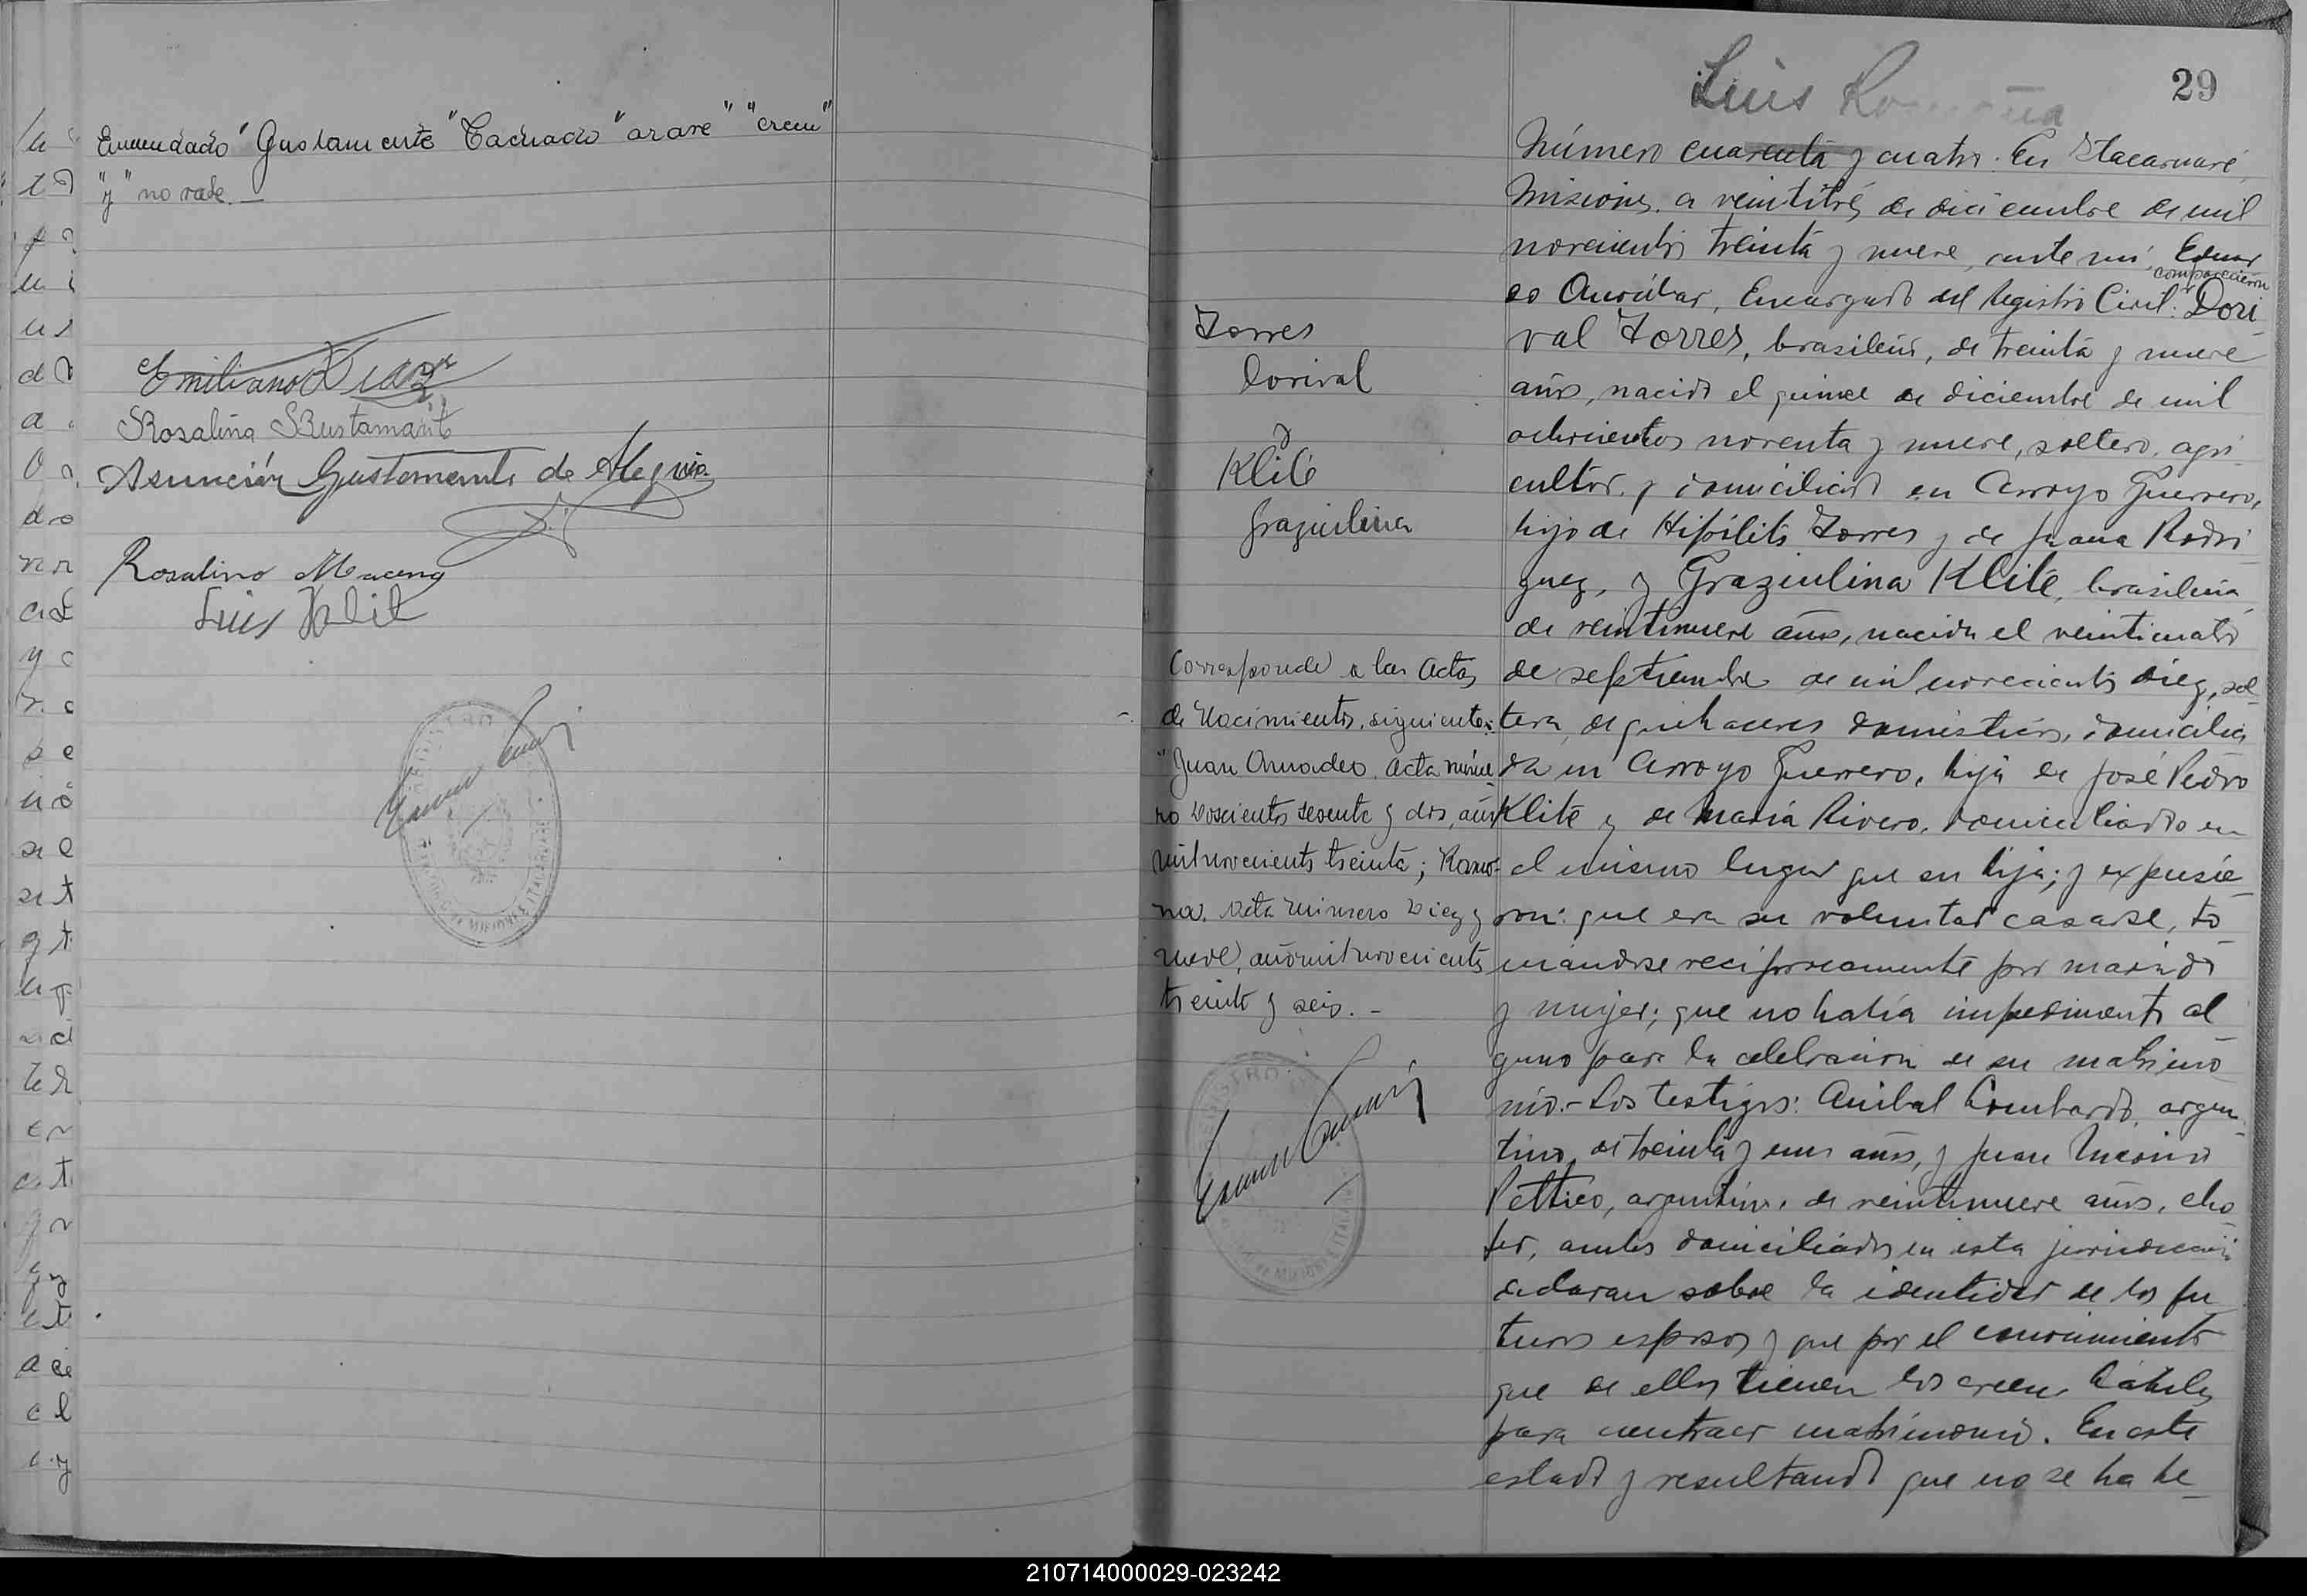 Enmendado "Gustamante" Tachado "arare" "creen"
"y" no vale.—
Emiliano Diaz
Rosalina Bustamante
Asunción Gustamante de Alegria
Rosalino
Luis Klit
29
Luis
Número cuarenta y cuatro. En Itacaruaré,
Misiones, a veintitrés de diciembre de mil
novecientos treinta y nueve, ante mí, Eduar
comparecieron
do Encargado del Registro Civil: Dori
val Torres, brasileño, de treinta y nueve
años, nacido el quince de diciembre de mil
ochocientos noventa y nueve, soltero, agri
cultor, y domiciliado en Arroyo Guerrero,
hijo de Hipólito Torres y de Juana Rodri
guez, y Graziulina Klite, brasileña,
de veintinueve años, nacida el veinticuatro
de septiembre de mil novecientos diez, sol
tera, de quehaceres domésticos, domicilia
da en Arroyo Guerrero, hija de José Pedro
Klite y de María Rivero, domiciliado en
el mismo lugar que su hija; y expusie
ron: que era su voluntad casarse, to
mándose recíprocamente por marido
y mujer; que no había impedimento al
guno para la celebración de su matrimo
nio.- Los testigos: Anibal Lombardo, argen
tino, de treinta y un años, y Juan
Pettieo, argentino, de veintinueve años, cho
fer, ambos domiciliados en esta jurisdicción
declaran sobre la identidad de los fu
turos esposos y que por el conocimiento
que de ellos tienen los creen hábiles
para contraer matrimonio. En este
estado y resultando que no se ha he
Torres
Dorival
y
Klité
Graziulina
Corresponde a las Actas
de Nacimientos, siguientes:
"Juan Amadeo, Acta núme
ro Doscientos sesenta y dos, año
mil novecientos treinta; Ramo-
na, Acta número Diez y
nueve, año mil novecientos
treinta y seis. -
210714000029-023242